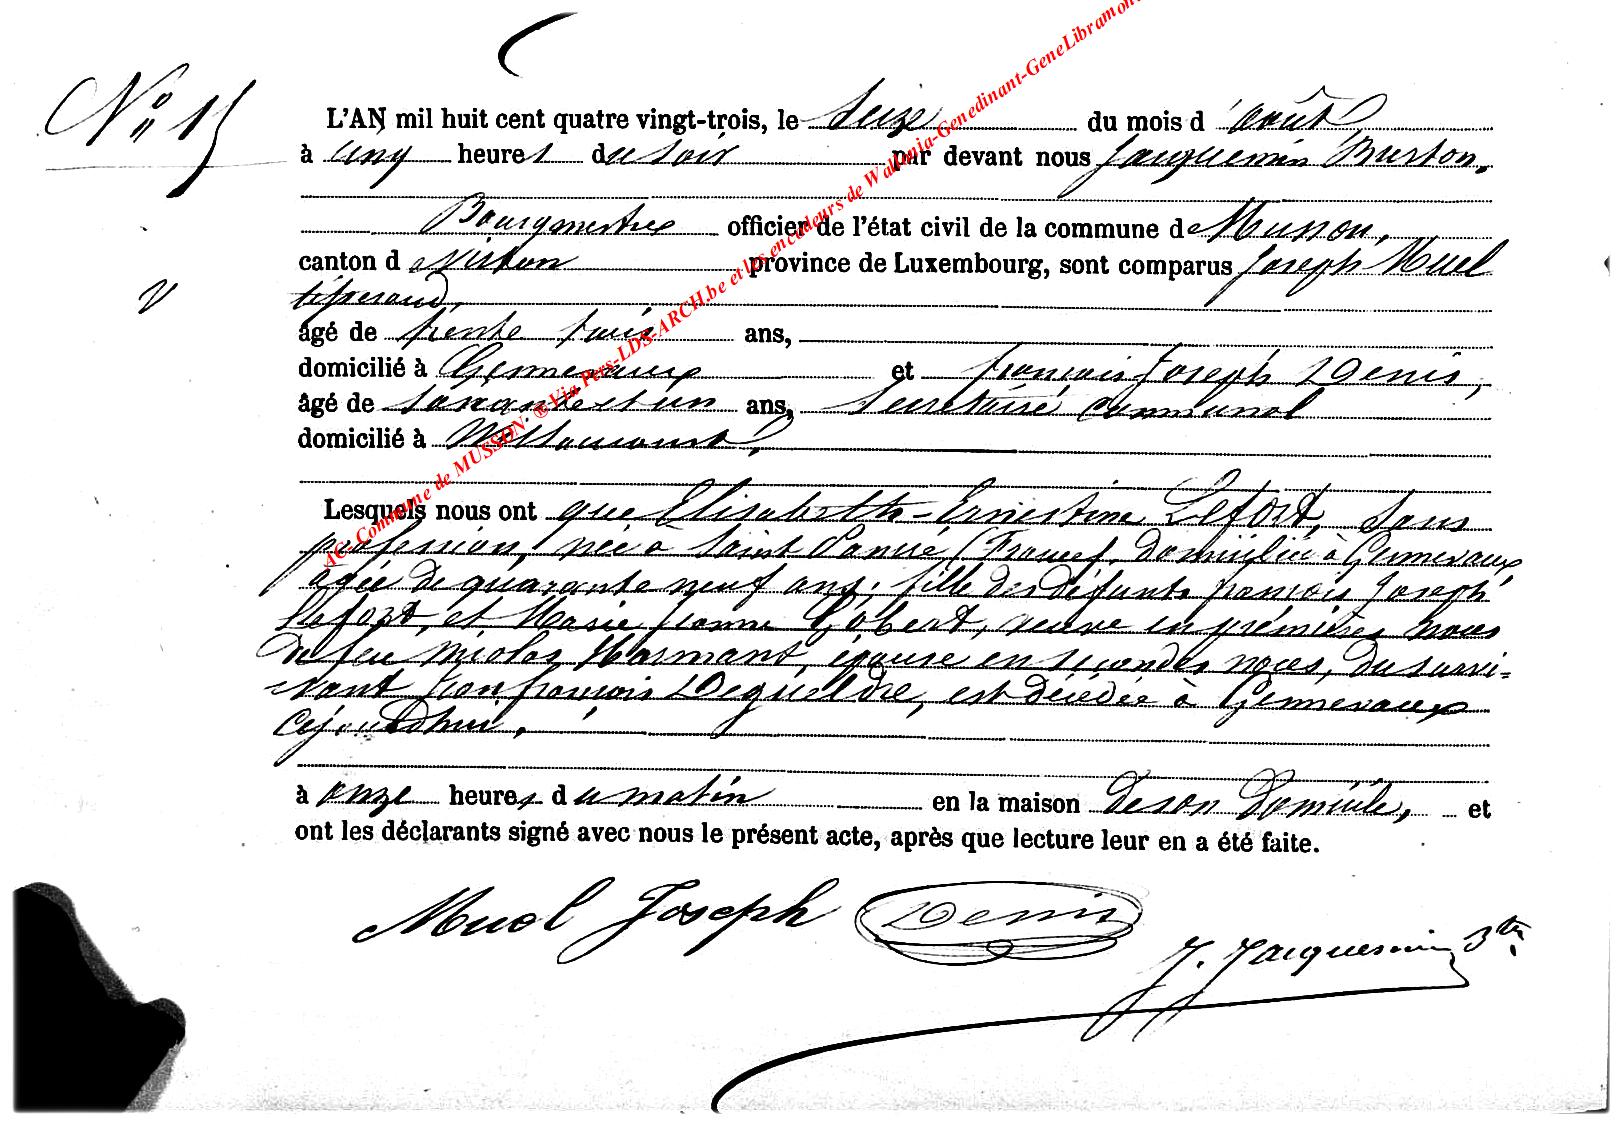 N° 15
L'AN mil huit cent quatre vingt-trois, le Seize du mois d'août
à cinq heures du soir par devant nous Jacquemin Burton,
Bourgmestre officier de l'état civil de la commune de Musson,
canton de Virton province de Luxembourg, sont comparus Joseph Muel
tisserand,
âgé de trente trois ans,
domicilié à Gennevaux et françois Joseph Denis,
âgé de soixante et un ans, Secrétaire communal
domicilié à Willancourt,
Lesquels nous ont que Elisabeth-Ernestine Lefort, sans
profession, née à Saint Pancré (France), domiciliée à Gennevaux
âgée de quarante neuf ans, fille des défunts françois Joseph
Lefort, et Marie Jeanne Gobert, veuve en premières noces
de feu Nicolas Harmant, épouse en secondes noces, du survi=
vant Jean françois Degueldre, est décédée à Gennevaux
cejourd'hui,
à onze heures du matin en la maison de son domicile, et
ont les déclarants signé avec nous le présent acte, après que lecture leur en a été faite.
Muel Joseph Denis
J. Jacquemin B.tre
V
AC- Commune de MUSSON. ®Via Pers-LDS-ARCH.be et les encodeurs de Wallonia-Genedinant-GeneLibramont